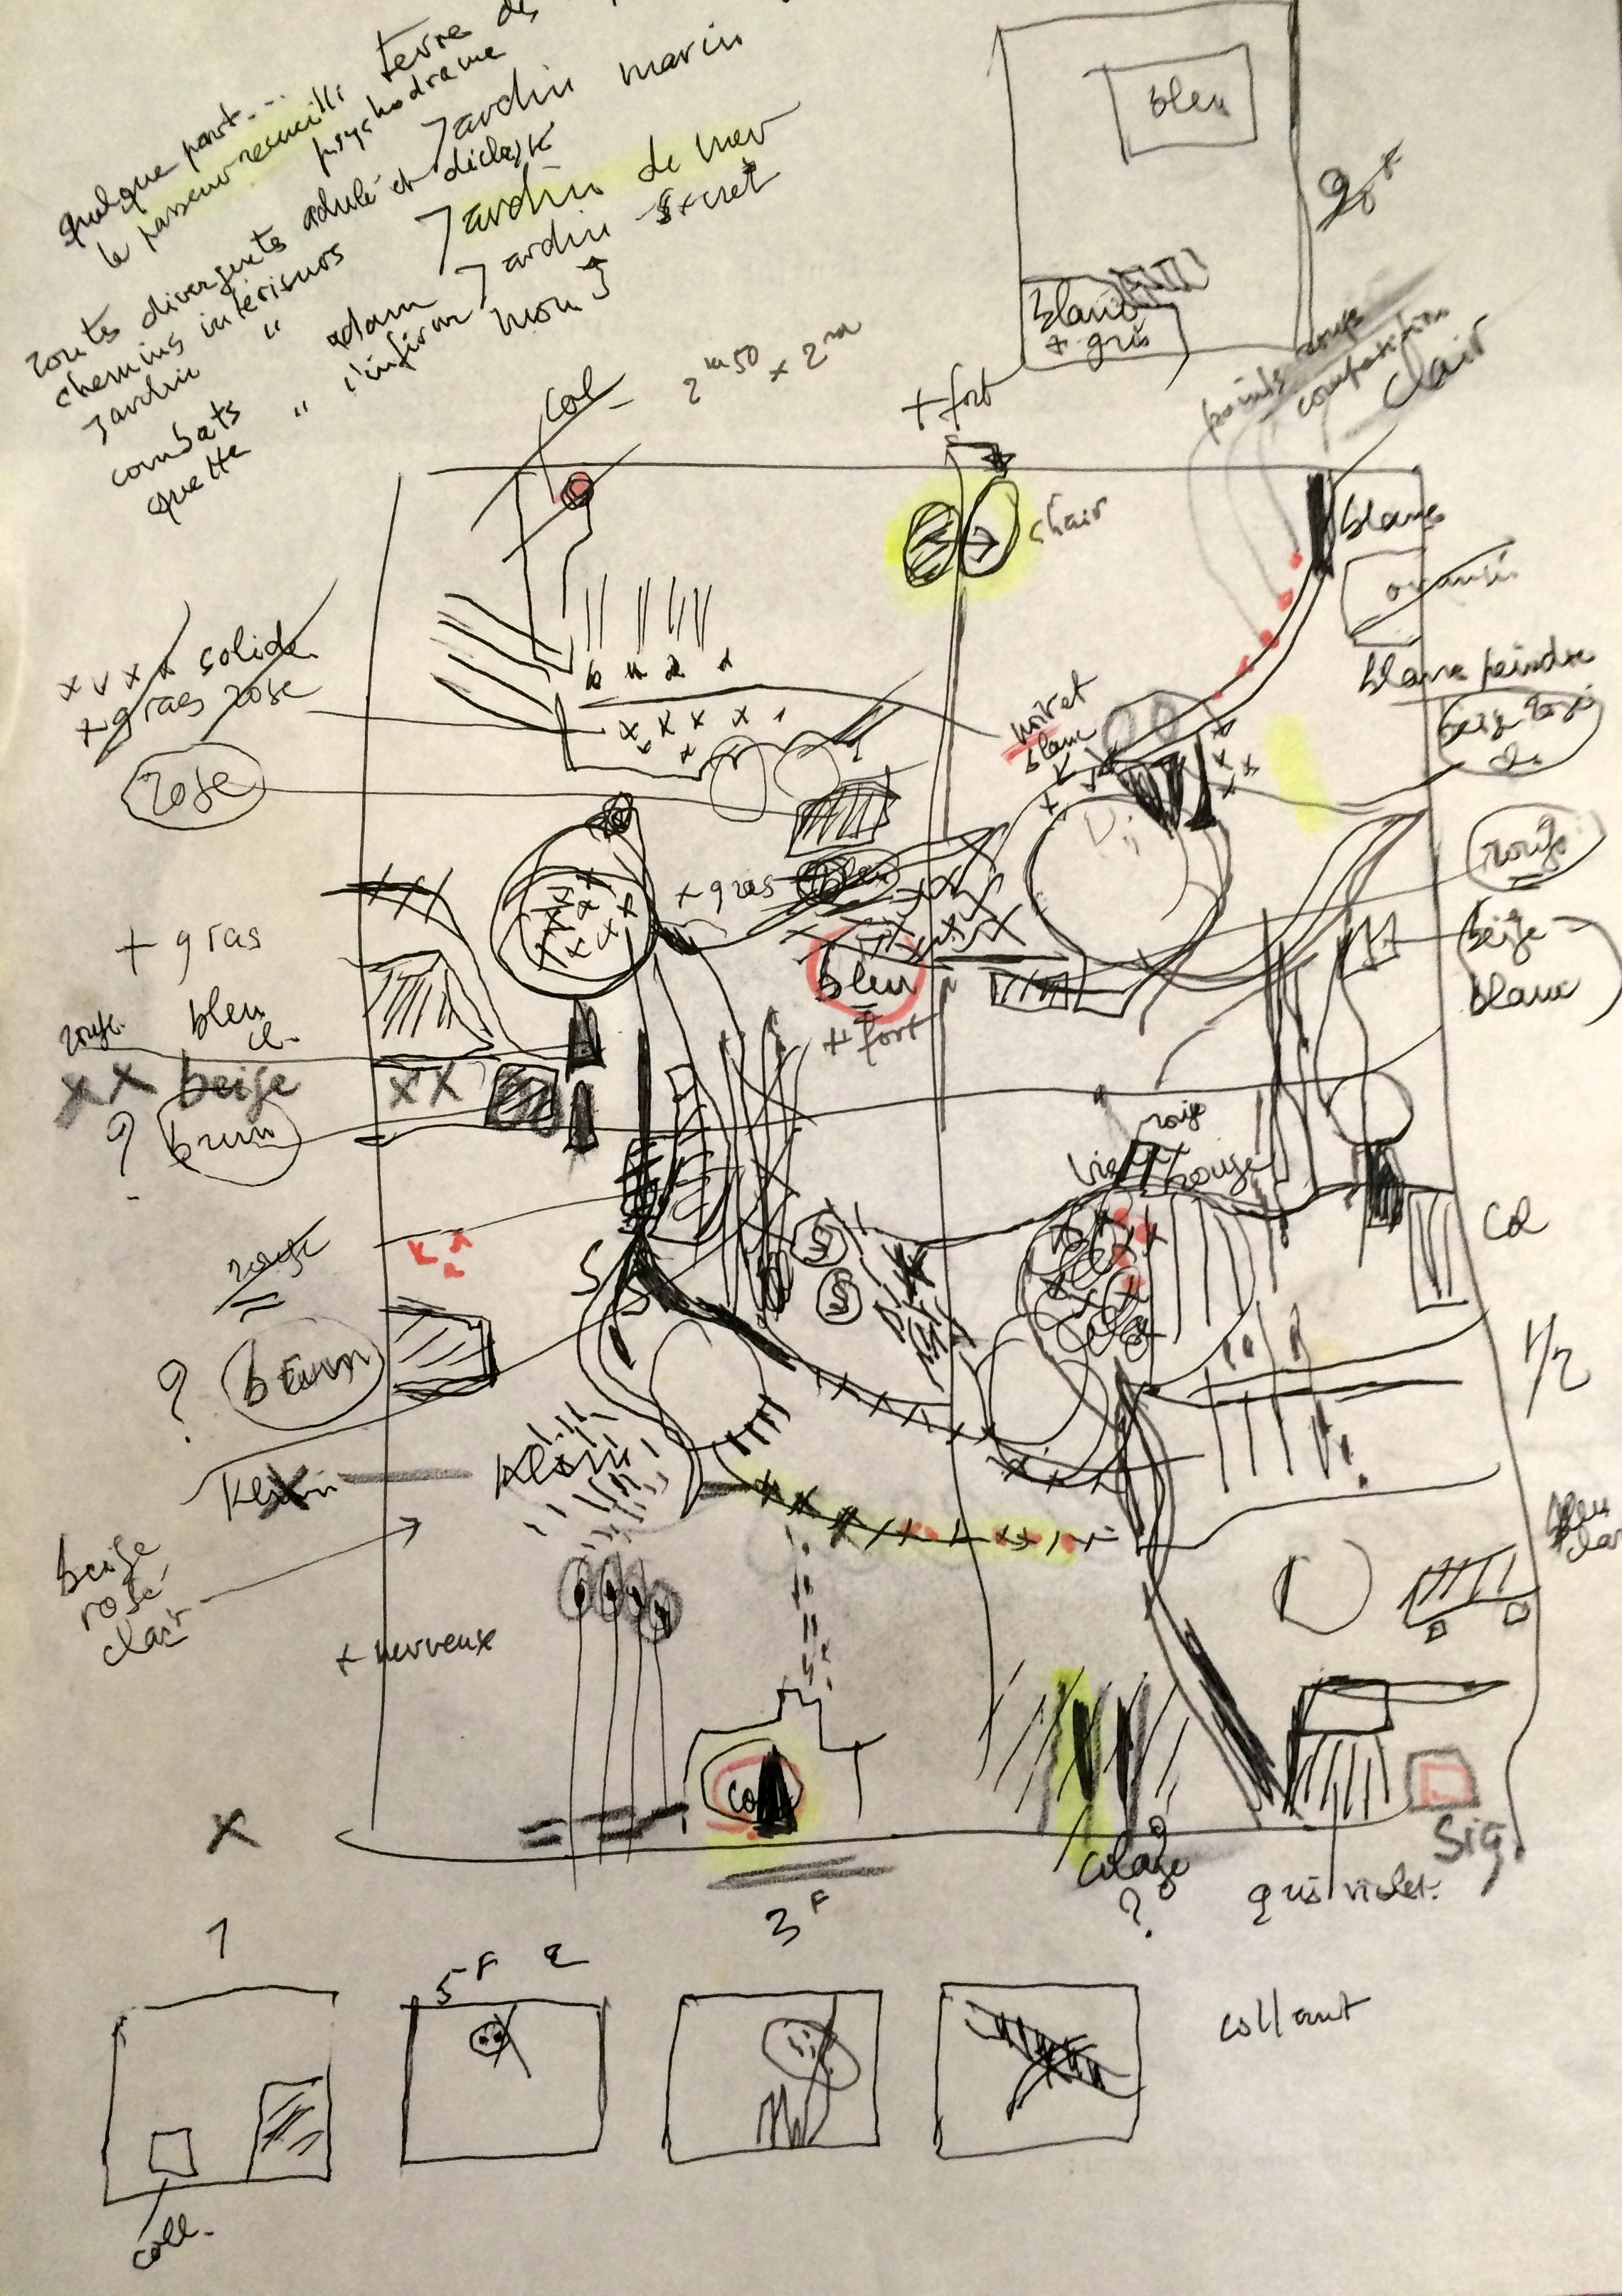 quelque part...
terre des
le passeur recueilli
psychodrame
Jardin marin
routes divergentes adulé et déclassé
Jardin de mer
chemins intérieurs
Jardin " adam
Jardin secret
combats " l'infirme
mon J
quette
bleu
blanc
+ gris
Col
2m50 x 2m
+ fort
points rouge
compation
clair
chair
blanc
orangé
blanc peindre
beige rosé
cl.
x v x x solide
+ gras rose
rose
noir et
blanc
+ gras bleu
rouge
beige
blanc
+ gras
bleu
cl.
rouge
xx beige
xx
? brun
bleu
+ fort
rouge
vieux rouge
S
S
S
Col
rouge
? brun
1/2
Klexin
bleu
clair
beige
rosé
clair
+ nerveux
Col
x
Sig.
colage
?
gris violet.
1
5F 2
3F
collant
coll.